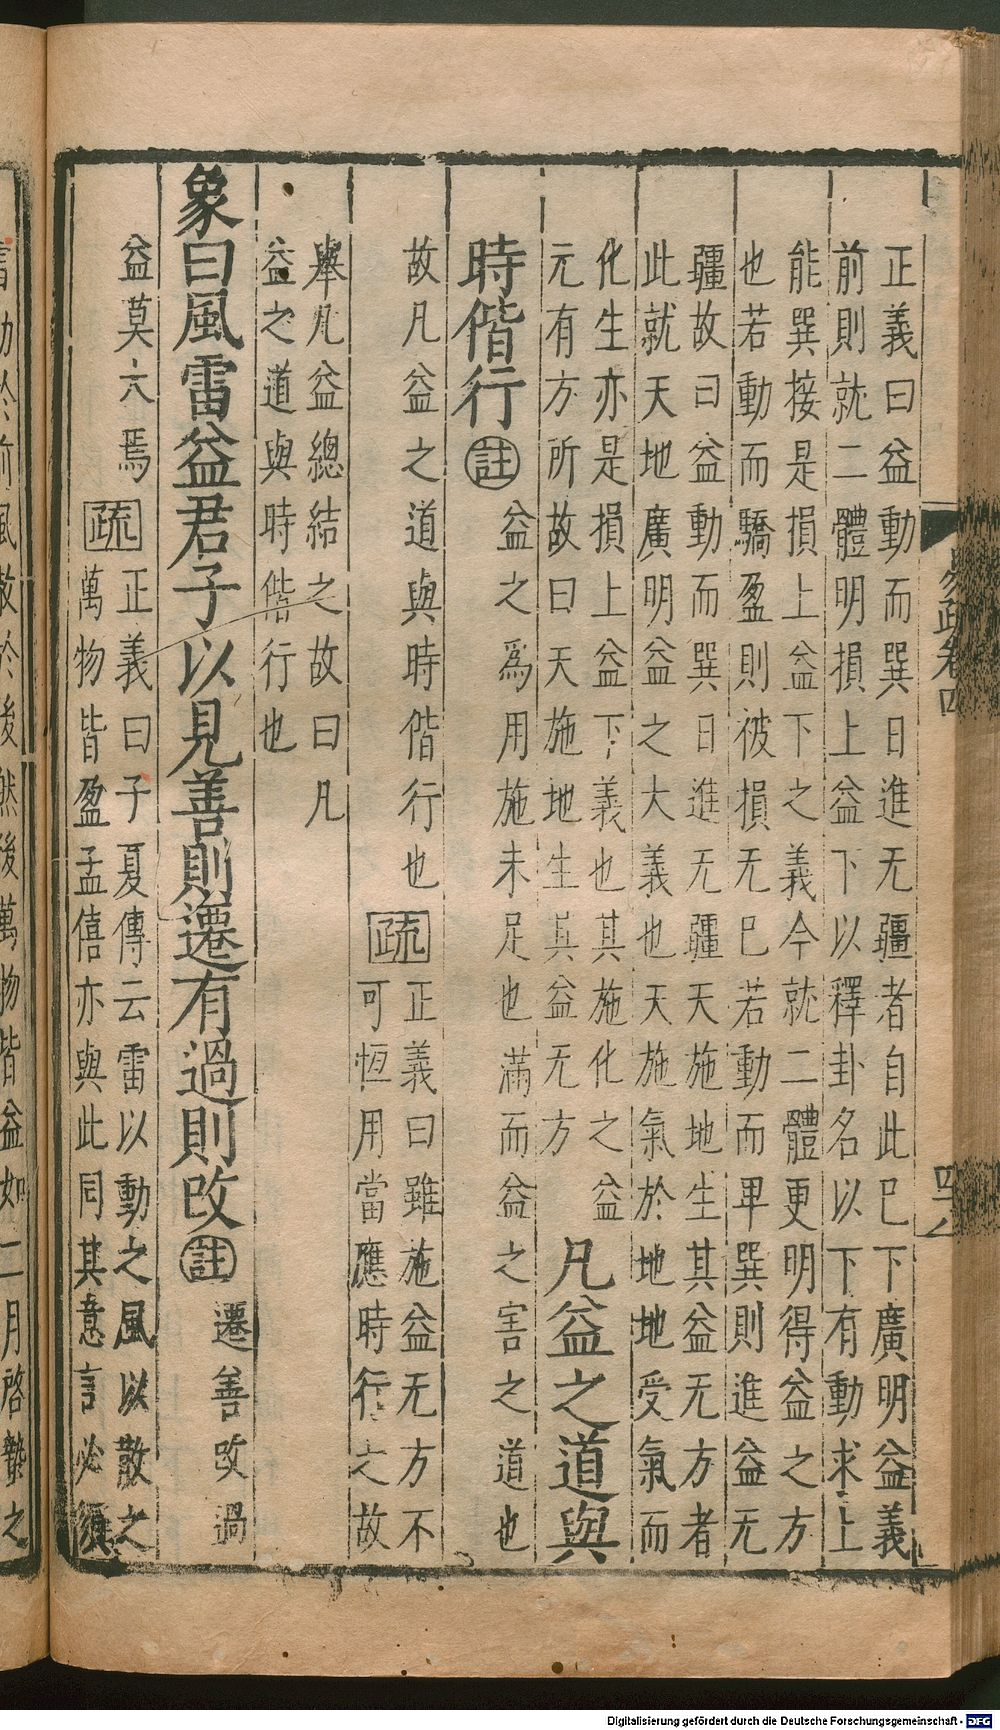 正義曰益動而巽日進无疆者自此巳下廣明益義
前則就二體明損上益下以釋卦名以下有動求上
能巽接是損上益下之義今就二體更明得益之方
也若動而驕盈則被損无巳若動而卑巽則進益无
疆故曰益動而巽日進无疆天施地生其益无方者
此就天地廣明益之大義也天施氣於地地受氣而
化生亦是損上益下義也其施化之益
元有方所故曰天施地生其益无方
凡益之道與
時偕行註
益之爲用施未足也滿而益之害之道也
故凡益之道與時偕行也
疏
正義曰雖施益无方不
可恆用當應時行之故
舉凡益總結之故曰凡
益之道與時偕行也
象曰風雷益君子以見善則遷有過則改註
遷善改過
益莫大焉
疏
正義曰子夏傳云雷以動之風以散之
萬物皆盈孟僖亦與此同其意言必須
雷動於前風散於後然後萬物皆益如二月啓蟄之
易疏卷四
Digitalisierung gefördert durch die Deutsche Forschungsgemeinschaft - DFG